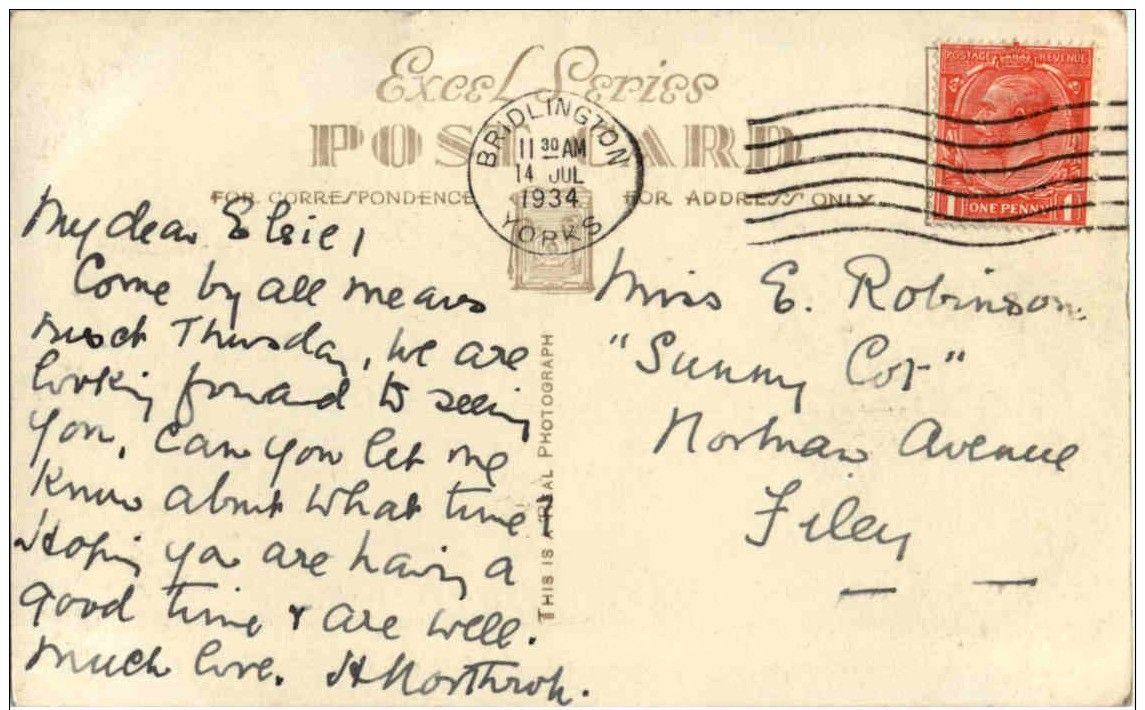 Excel Series
POST CARD
FOR CORRESPONDENCE
FOR ADDRESS ONLY
BRIDLINGTON
11 30 AM
14 JUL
1934
YORKS
POSTAGE REVENUE
1 ONE PENNY 1
My dear Elsie,
Come by all means
next Thursday, we are
looking forward to seeing
you, can you let me
know about what time?
Hoping you are having a
good time & are well.
Much love. H Northrop.
THIS IS A REAL PHOTOGRAPH
Miss E. Robinson.
"Sunny Cot"
Norman Avenue
Filey